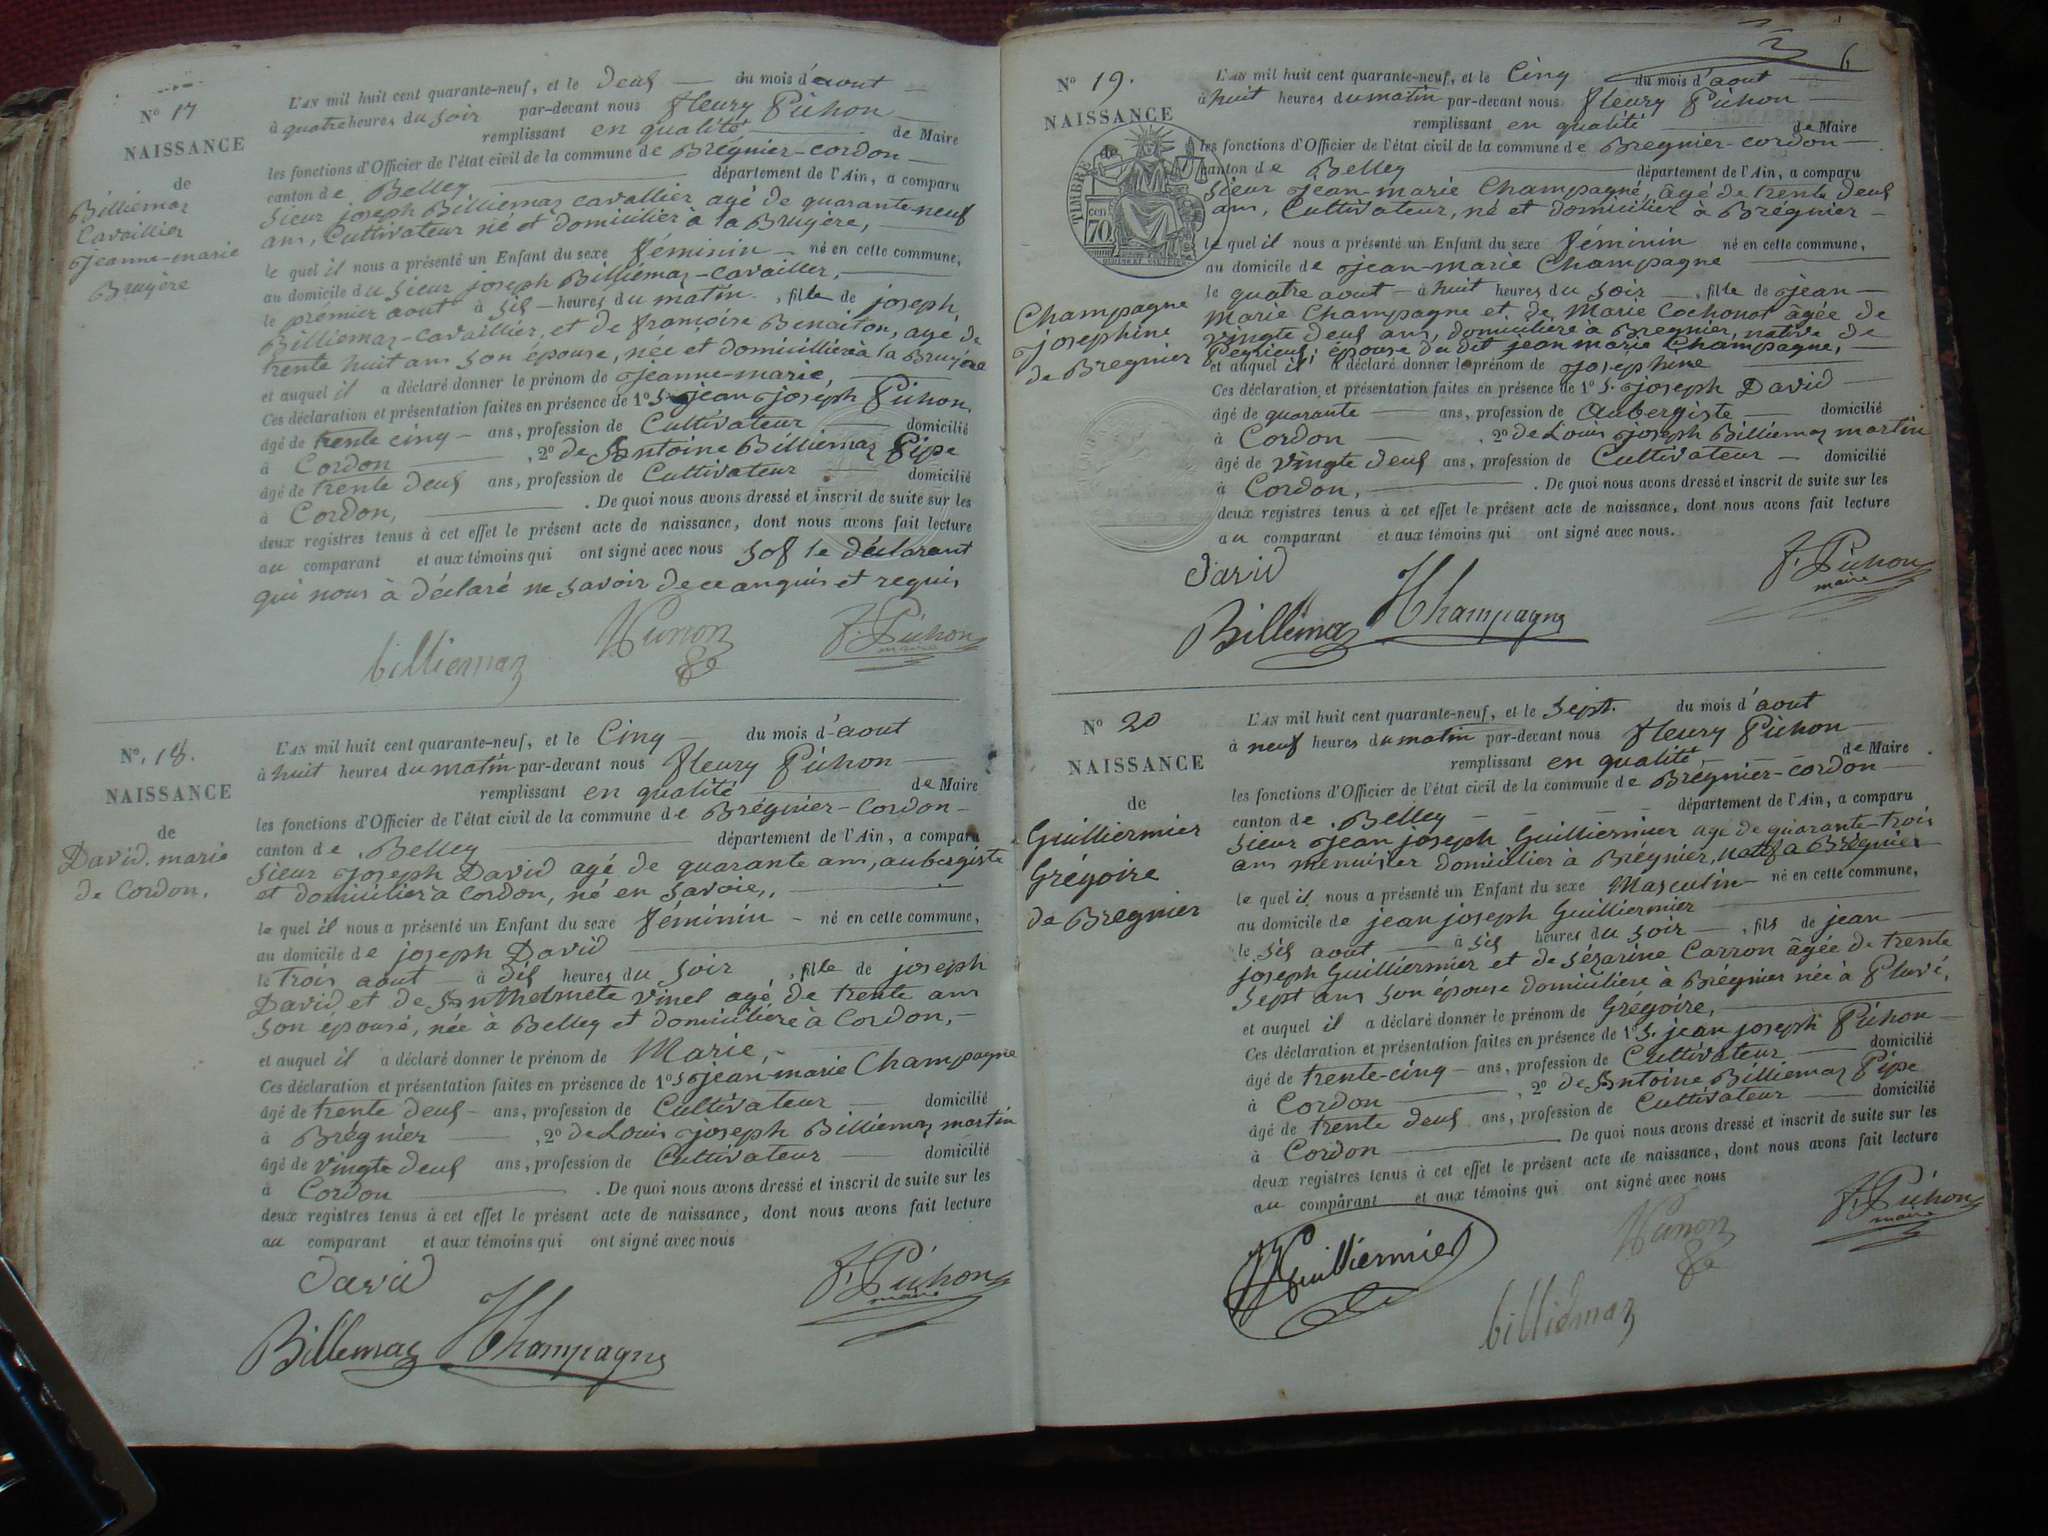 N° 17
NAISSANCE
de
Billiemaz
Cavaillier
Jeanne-marie
Bruyère
L'AN mil huit cent quarante-neuf, et le deus du mois d'aout
à quatre heures du soir par-devant nous fleury Pichon
remplissant en qualité de Maire
les fonctions d'Officier de l'état civil de la commune de Bregnier-cordon
canton de Belley département de l'Ain, a comparu
sieur joseph Billiemaz cavallier agé de quarante-neuf
ans, Cultivateur né et domicilier a la Bruyère,
le quel il nous a présenté un Enfant du sexe féminin né en cette commune,
au domicile du sieur joseph Billiémaz-cavailler,
le premier aout à sis heures du matin, fille de joseph
Billiemaz-cavaillier, et de françoise Benaiton, agé de
trente huit ans son épouse, née et domicilliere à la Bruyère
et auquel il a déclaré donner le prénom de Jeanne-marie,
Ces déclaration et présentation faites en présence de 1° S. jean joseph Pichon
âgé de trente cinq ans, profession de Cultivateur domicilié
à Cordon, 2° de Antoine Billiemaz Pipe
âgé de trente deus ans, profession de Cultivateur domicilié
à Cordon, . De quoi nous avons dressé et inscrit de suite sur les
deux registres tenus à cet effet le présent acte de naissance, dont nous avons fait lecture
au comparant et aux témoins qui ont signé avec nous sof le déclarant
qui nous à déclaré ne savoir de ce anquis et requis
billiemaz F. Pichon
maire
N°. 18.
NAISSANCE
de
David. marie
de Cordon.
L'AN mil huit cent quarante-neuf, et le Cinq du mois d'aout
à huit heures du matin par-devant nous fleury Pichon
remplissant en qualité de Maire
les fonctions d'Officier de l'état civil de la commune de Brégnier-Cordon
canton de Belley département de l'Ain, a comparu
sieur joseph David agé de quarante ans, aubergiste
et domicilier à Cordon, né en savoie,
le quel il nous a présenté un Enfant du sexe féminin né en cette commune,
au domicile de joseph David
le trois aout à dis heures du soir, fille de joseph
David et de Anthelmete vinel agé de trente ans
son épouse, née à Belley et domiciliere à Cordon,
et auquel il a déclaré donner le prénom de Marie,
Ces déclaration et présentation faites en présence de 1° S jean-marie Champagne
âgé de trente deus ans, profession de Cultivateur domicilié
à Brégnier, 2° de Louis joseph Billiémaz martin
âgé de vingte deus ans, profession de Cultivateur domicilié
à Cordon . De quoi nous avons dressé et inscrit de suite sur les
deux registres tenus à cet effet le présent acte de naissance, dont nous avons fait lecture
au comparant et aux témoins qui ont signé avec nous
David F. Pichon
maire
Billemaz Champagne
6
N° 19.
NAISSANCE
de
TIMBRE
70 cen
Champagne
josephine
de Bregnier
L'AN mil huit cent quarante-neuf, et le Cinq du mois d'aout
à huit heures du matin par-devant nous fleury Pichon
remplissant en qualité de Maire
les fonctions d'Officier de l'état civil de la commune de Bregnier-cordon
canton de Belley département de l'Ain, a comparu
sieur jean-marie Champagne, âgé de trente deus
ans, Cultivateur, né et domicilier à Brégnier
le quel il nous a présenté un Enfant du sexe féminin né en cette commune,
au domicile de jean-marie Champagne
le quatre aout à huit heures du soir, fille de jean
marie Champagne et de Marie Cochonat âgée de
vingte deus ans, domiciliere à Bregnier, native de
Peyrieus, épouse du dit jean marie Champagne,
et auquel il a déclaré donner le prénom de josephine
Ces déclaration et présentation faites en présence de 1° S. joseph David
âgé de quarante ans, profession de Aubergiste domicilié
à Cordon, 2° de Louis joseph Billiemaz martin
âgé de vingte deus ans, profession de Cultivateur domicilié
à Cordon, . De quoi nous avons dressé et inscrit de suite sur les
deux registres tenus à cet effet le présent acte de naissance, dont nous avons fait lecture
au comparant et aux témoins qui ont signé avec nous.
David F. Pichon
maire
Billémaz Champagne
N° 20
NAISSANCE
de
Guilliermier
Grégoire
de Bregnier
L'AN mil huit cent quarante-neuf, et le sept. du mois d'aout
à neuf heures du matin par-devant nous fleury Pichon
remplissant en qualité de Maire
les fonctions d'Officier de l'état civil de la commune de Brégnier-cordon
canton de Belley département de l'Ain, a comparu
sieur jean joseph Guilliermier age de quarante-trois
ans menuisier domicilier à Brégnier, natif a Brégnier
le quel il nous a présenté un Enfant du sexe Masculin né en cette commune,
au domicile de jean joseph Guilliermier
le sis aout à sis heures du soir, fils de jean
joseph Guilliermier et de sésarine Carron âgée de trente
sept ans son épouse domiciliere à Brégnier née à Pluvé,
et auquel il a déclaré donner le prénom de Grégoire,
Ces déclaration et présentation faites en présence de 1° S. jean joseph Pichon
âgé de trente-cinq ans, profession de Cultivateur domicilié
à Cordon, 2° de Antoine Billiemaz Pipe
âgé de trente deus ans, profession de Cultivateur domicilié
à Cordon De quoi nous avons dressé et inscrit de suite sur les
deux registres tenus à cet effet le présent acte de naissance, dont nous avons fait lecture
au comparant et aux témoins qui ont signé avec nous
Guilliermier F. Pichon
maire
billiémaz